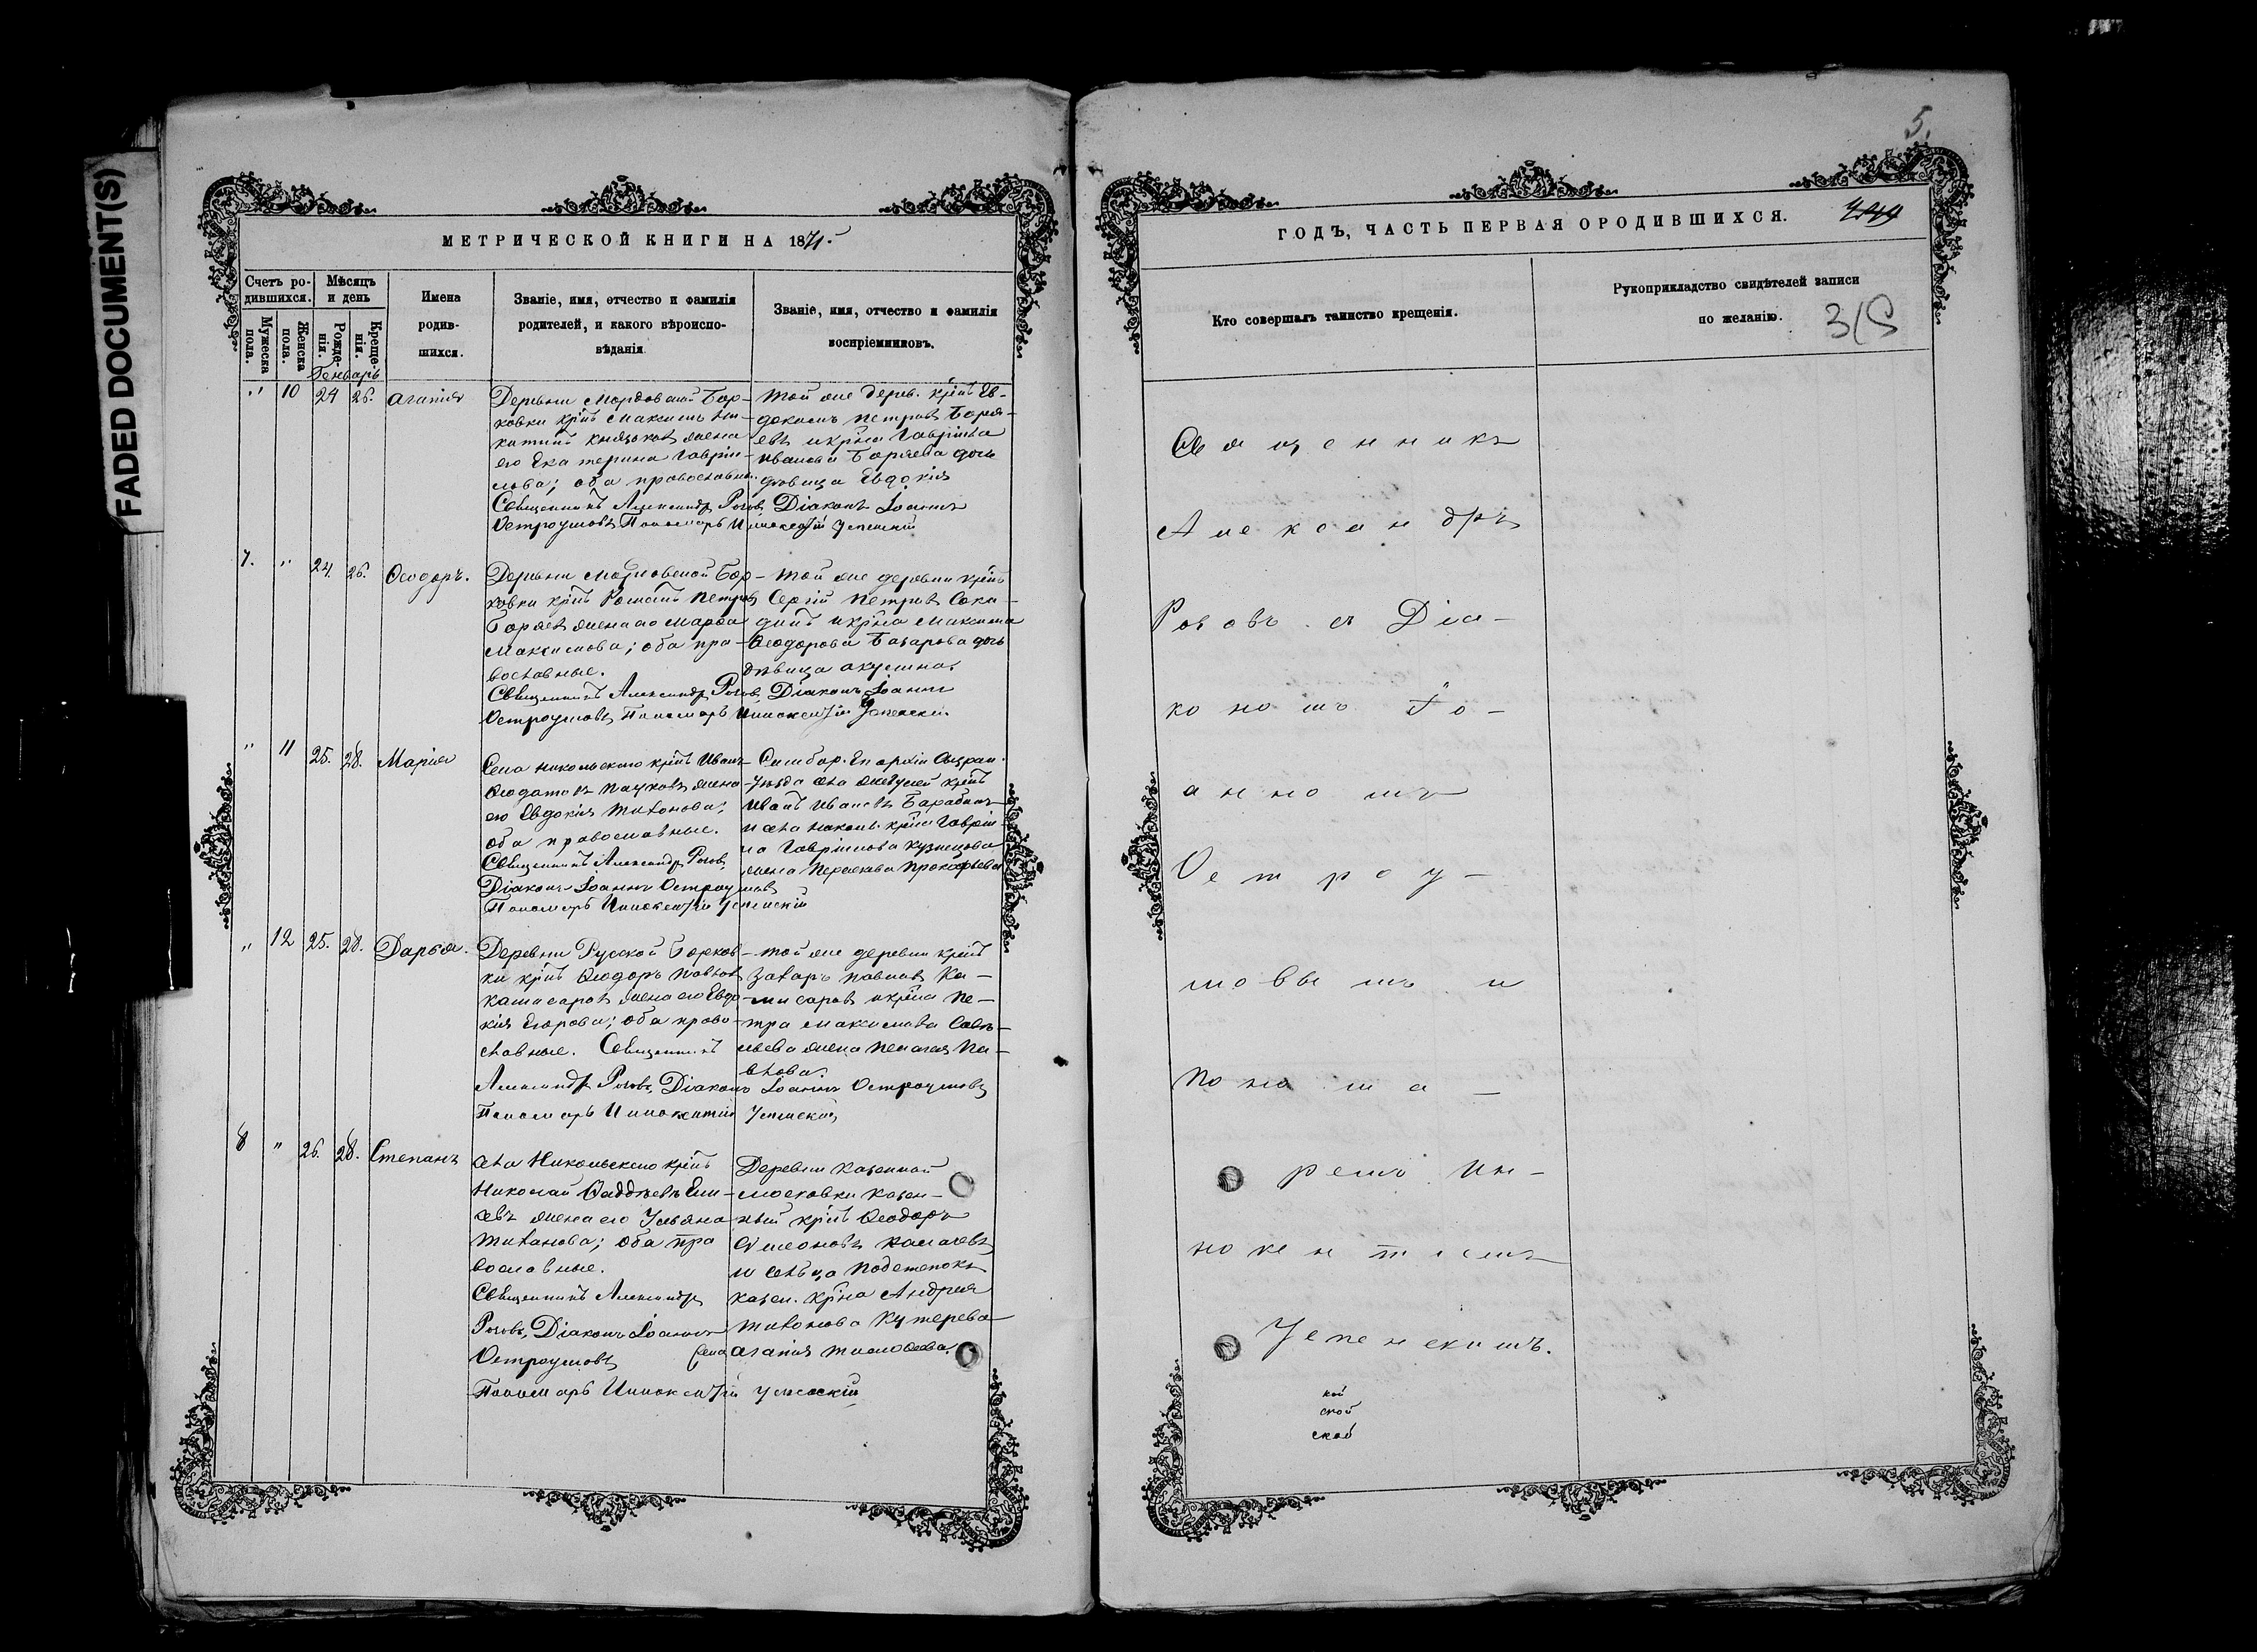 FADED DOCUMENT(S)
МЕТРИЧЕСКОЙ КНИГИ НА 1871.
Счетъ ро-
дившихся.
Мужеска пола.
Женска пола.
Мѣсяцъ
и день
Рожде-
нія.
Креще-
нія.
Генварь
Имена
родив-
шихся.
Званіе, имя, отчество и фамилія
родителей, и какого вѣроиспо-
вѣданія.
Званіе, имя, отчество и фамилія
воспріемниковъ.
" 10 24 26. Агапія
Деревни Мордовской Бор-
ковки крн͠ъ Максимъ Ни-
китинъ Князковъ жена
его Екатерина Гаврiи-
лова; оба православн.
Священникъ Александръ Роговъ, Діаконъ Іоаннъ
Остроумовъ Пономарь Иннокентій Успенскій
Той же дерев. крн͠ъ Ев-
докимъ Петровъ Боря-
евъ и крн͠на Гавріила
Иванова Боряева дочь
дѣвица Евдокія
7. " 24. 26. Ѳеодоръ.
Деревни Мордовской Бор-
ковки крн͠ъ Романъ Петровъ
Боряевъ жена его Марѳа
Максимова; оба пра-
вославные.
Священникъ Александръ Роговъ, Діаконъ Іоаннъ
Остроумовъ Пономарь Иннокентій Успенскій
Той же деревни крн͠ъ
Сергій Петровъ Соки-
динъ и крн͠на Максима
Ѳеодорова Базарова дочь
дѣвица Акулина.
" 11 25. 28. Марія
Села Никольскаго крн͠ъ Иванъ
Ѳедотовъ Пауковъ жена
его Евдокія Тихонова;
оба православные.
Священникъ Александръ Роговъ,
Діаконъ Іоаннъ Остроумовъ
Пономарь Иннокентій Успенскій
Симбир. Епархіи Сызран.
Уѣзда села Жегулей крн͠ъ
Иванъ Ивановъ Барабинъ
и села Николь. крн͠на Гаврiи-
ла Гавріилова Кузнецова
жена Перасковья Прокофьева
" 12 25. 28. Дарья.
Деревни Русской Борков-
ки крн͠ъ Ѳеодоръ Павловъ
Камисаровъ жена его Евдо-
кія Егорова; оба право-
славные. Священникъ
Александръ Роговъ, Діаконъ Іоаннъ Остроумовъ
Пономарь Иннокентій Успенскій
Той же деревни крн͠ъ
Захаръ Павловъ Ка-
мисаровъ и крн͠на Пе-
тра Максимова Савѣ-
льева жена Пелагея Па-
влова.
8 " 26. 28. Степанъ
Села Никольскаго крн͠ъ
Николай Ѳаддѣевъ
жена его Ульяна
Тиханова; оба пра
вославные.
Священникъ Александръ
Роговъ, Діаконъ Іоаннъ
Остроумовъ
Пономарь Иннокентій Успенскій
Деревни Казенной
Московки казен-
ный крн͠ъ Ѳеодоръ
Симоновъ
и сельца Подстепокъ
казен. крн͠на Андрея
Тихонова Кутерева
Агапія Тимоѳеева.
5.
ГОДЪ, ЧАСТЬ ПЕРВАЯ О РОДИВШИХСЯ.
Кто совершалъ таинство крещенія.
Рукоприкладство свидѣтелей записи
по желанію.
Священникъ
Александръ
Роговъ съ Діа-
кономъ Іо-
анномъ
Остроу-
мовымъ и
Понома-
ремъ Ин-
нокентіемъ
Успенскимъ.
кой
ской
ской